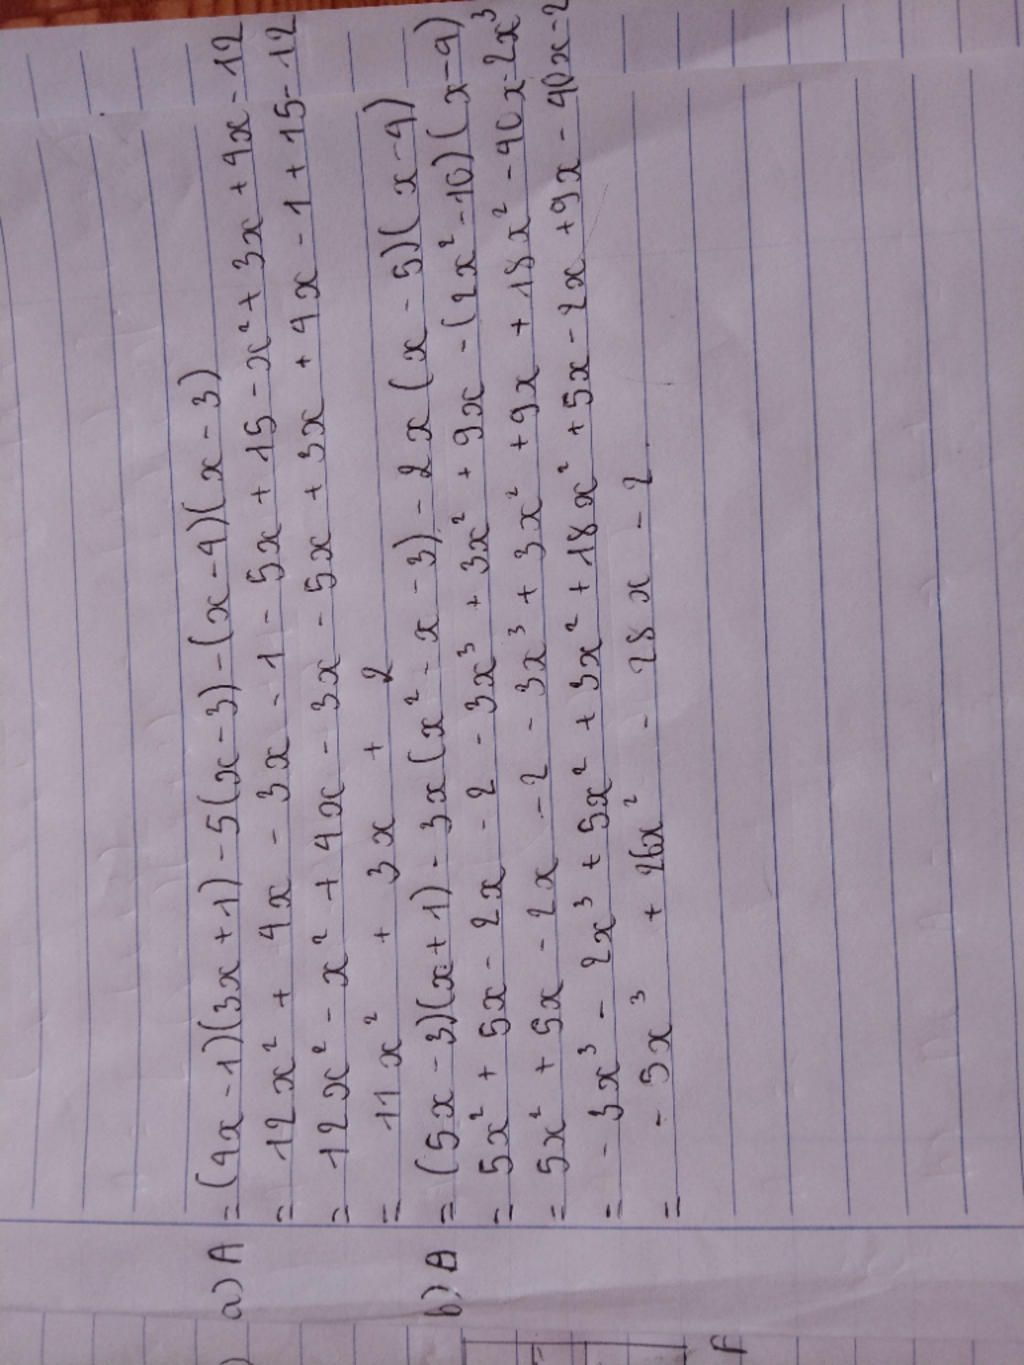 a) A = (4x - 1)(3x + 1) - 5(x - 3) - (x - 4)(x - 3)
= 12x² + 4x - 3x - 1 - 5x + 15 - x² + 3x + 4x - 12
= 12x² - x² + 4x - 3x - 5x + 3x + 4x - 1 + 15 - 12
= 11x² + 3x + 2
b) B = (5x - 3)(x + 1) - 3x(x² - x - 3) - 2x(x - 5)(x - 4)
= 5x² + 5x - 2x - 2 - 3x³ + 3x² + 9x - (2x² - 10)(x - 4)
= 5x² + 5x - 2x - 2 - 3x³ + 3x² + 9x + 18x² - 40x - 2x³
= - 3x³ - 2x³ + 5x² + 3x² + 18x² + 5x - 2x + 9x - 40x - 2
= - 5x³ + 26x² - 28x - 2